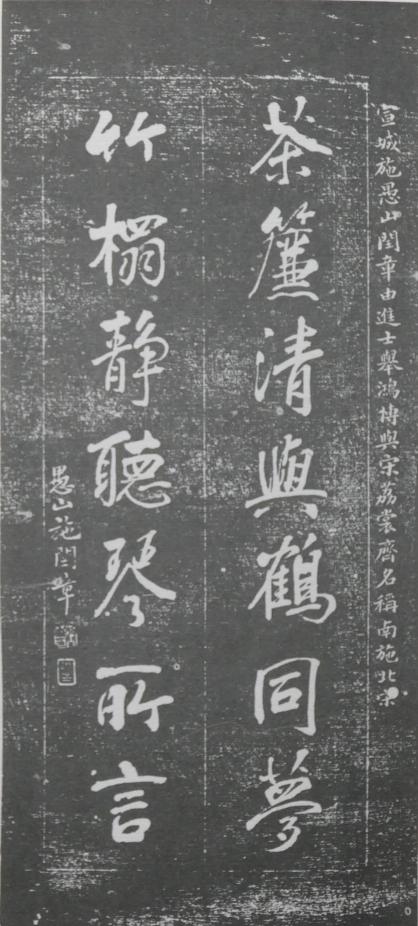 宣城施愚山閏章由進士舉鴻博與宋荔裳齊名稱南施北宋
茶簾清與鶴同夢
竹榻靜聽琴所言
愚山施閏章